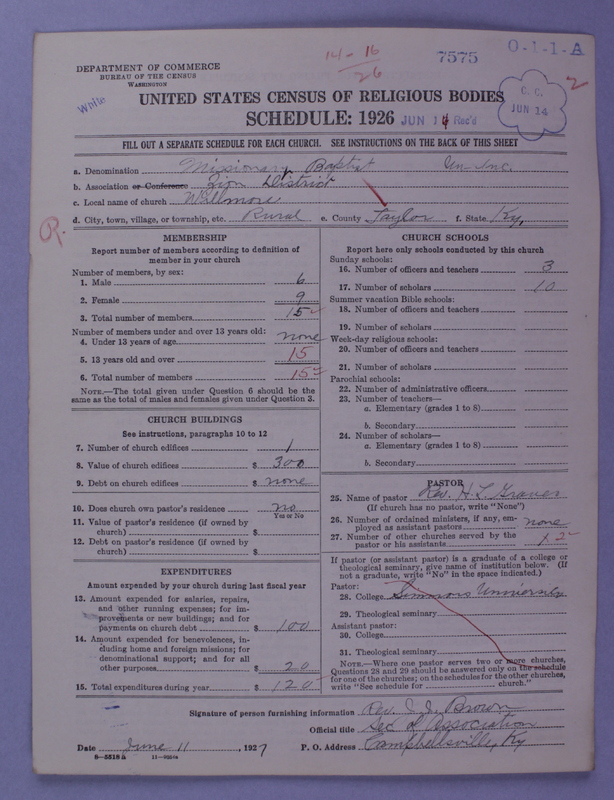 DEPARTMENT OF COMMERCE
BUREAU OF THE CENSUS
WASHINGTON
14-16
26
7575
O-1-1-A
C. C.
JUN 14
2
White
UNITED STATES CENSUS OF RELIGIOUS BODIES
SCHEDULE: 1926 JUN 14 Rec'd
FILL OUT A SEPARATE SCHEDULE FOR EACH CHURCH. SEE INSTRUCTIONS ON THE BACK OF THIS SHEET
a. Denomination Missionary Baptist Un-Inc.
b. Association or Conference Zion District
c. Local name of church Willmore
d. City, town, village, or township, etc. Rural e. County Taylor f. State Ky.
R.
MEMBERSHIP
Report number of members according to definition of
member in your church
Number of members, by sex:
1. Male 6
2. Female 9
3. Total number of members 15
Number of members under and over 13 years old:
4. Under 13 years of age none
5. 13 years old and over 15
6. Total number of members 15
NOTE.—The total given under Question 6 should be the
same as the total of males and females given under Question 3.
CHURCH BUILDINGS
See instructions, paragraphs 10 to 12
7. Number of church edifices 1
8. Value of church edifices $ 300
9. Debt on church edifices $ none
10. Does church own pastor's residence no
Yes or No
11. Value of pastor's residence (if owned by
church) $
12. Debt on pastor's residence (if owned by
church) $
EXPENDITURES
Amount expended by your church during last fiscal year
13. Amount expended for salaries, repairs,
and other running expenses; for im-
provements or new buildings; and for
payments on church debt $ 100
14. Amount expended for benevolences, in-
cluding home and foreign missions; for
denominational support; and for all
other purposes $ 20
15. Total expenditures during year $ 120
CHURCH SCHOOLS
Report here only schools conducted by this church
Sunday schools:
16. Number of officers and teachers 3
17. Number of scholars 10
Summer vacation Bible schools:
18. Number of officers and teachers
19. Number of scholars
Week-day religious schools:
20. Number of officers and teachers
21. Number of scholars
Parochial schools:
22. Number of administrative officers
23. Number of teachers—
a. Elementary (grades 1 to 8)
b. Secondary
24. Number of scholars—
a. Elementary (grades 1 to 8)
b. Secondary
PASTOR
25. Name of pastor Rev. H. L. Graves
(If church has no pastor, write "None")
26. Number of ordained ministers, if any, em-
ployed as assistant pastors none
27. Number of other churches served by the
pastor or his assistants 2
If pastor (or assistant pastor) is a graduate of a college or
theological seminary, give name of institution below. (If
not a graduate, write "No" in the space indicated.)
Pastor:
28. College Simmons University
29. Theological seminary
Assistant pastor:
30. College
31. Theological seminary
NOTE.—Where one pastor serves two or more churches,
Questions 28 and 29 should be answered only on the schedule
for one of the churches; on the schedules for the other churches,
write "See schedule for church."
Signature of person furnishing information Rev. Brown
Official title Sec of Association
Date June 11, 1927 P. O. Address Campbellsville, Ky
8-5518 A